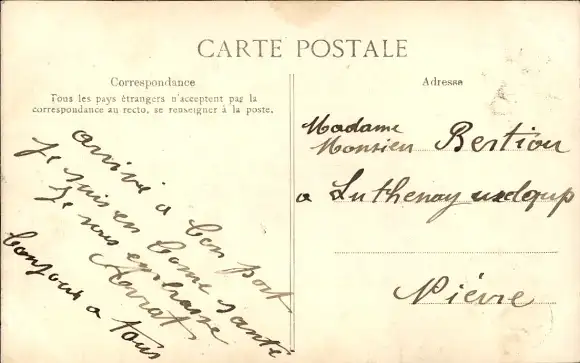 CARTE POSTALE
Correspondance
Tous les pays étrangers n'acceptent pas la
correspondance au recto, se renseigner à la poste.
Adresse
arrivé a bon port
Je suis en bonne santé
Je vous embrasse
bonjour a tous
Madame
Monsieu Bertion
a Luthenay uxeloup
Nièvre